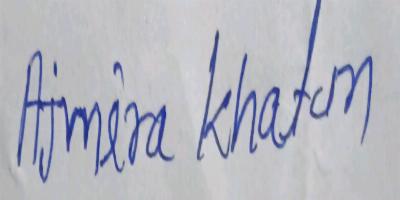 Ajmira Khatun